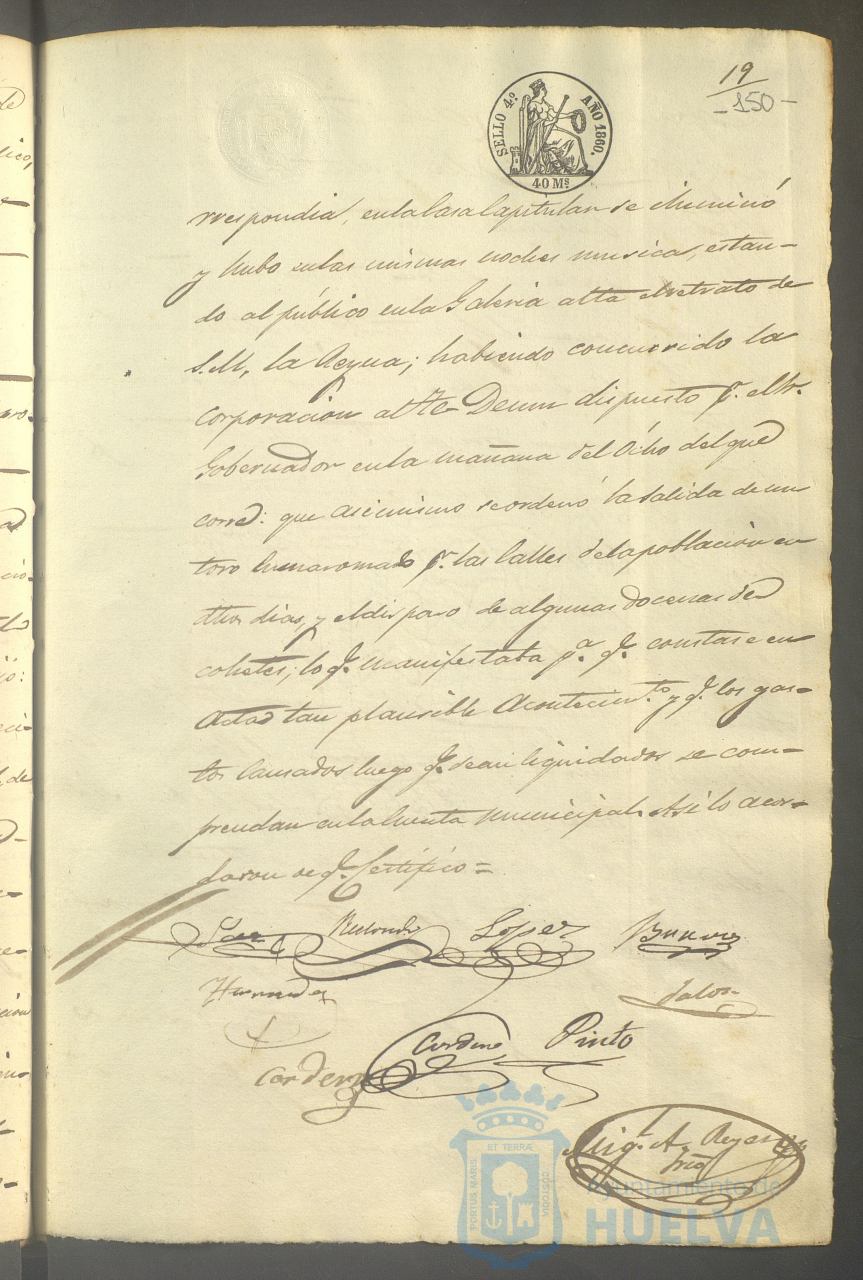 19
-150-
SELLO 4º. AÑO 1860.
40 Ms
rrespondia, en la Casa Capitular se iluminó
y hubo en las mismas noches musica, estan-
do al público en la Galeria alta el retrato de
S.M, la Reyna; habiendo concurrido la
corporacion al Te Deum dispuesto pr. el Sr.
Gobernador en la mañana del Ocho del que
corre: que asimismo se ordenó la salida de un
toro enmaromado pr. las Calles de la poblacion en
dhos dias, y el disparo de algunas docenas de
cohetes; lo q. manifestaba pa. q. constase en
Acta tan plausible Acontecimto. y q. los gas-
tos causados luego q. sean liquidados se com-
prendan en la Cuenta Municipal. Asi lo acor-
daron de q. Certifico =
Redondo Lopez
Hernandez
Cordero Pinto
Cordero
Migl. A. Reyes
Srio
ET TERRÆ
PORTUS MARIS
CUSTODIA
Ayuntamiento de
HUELVA